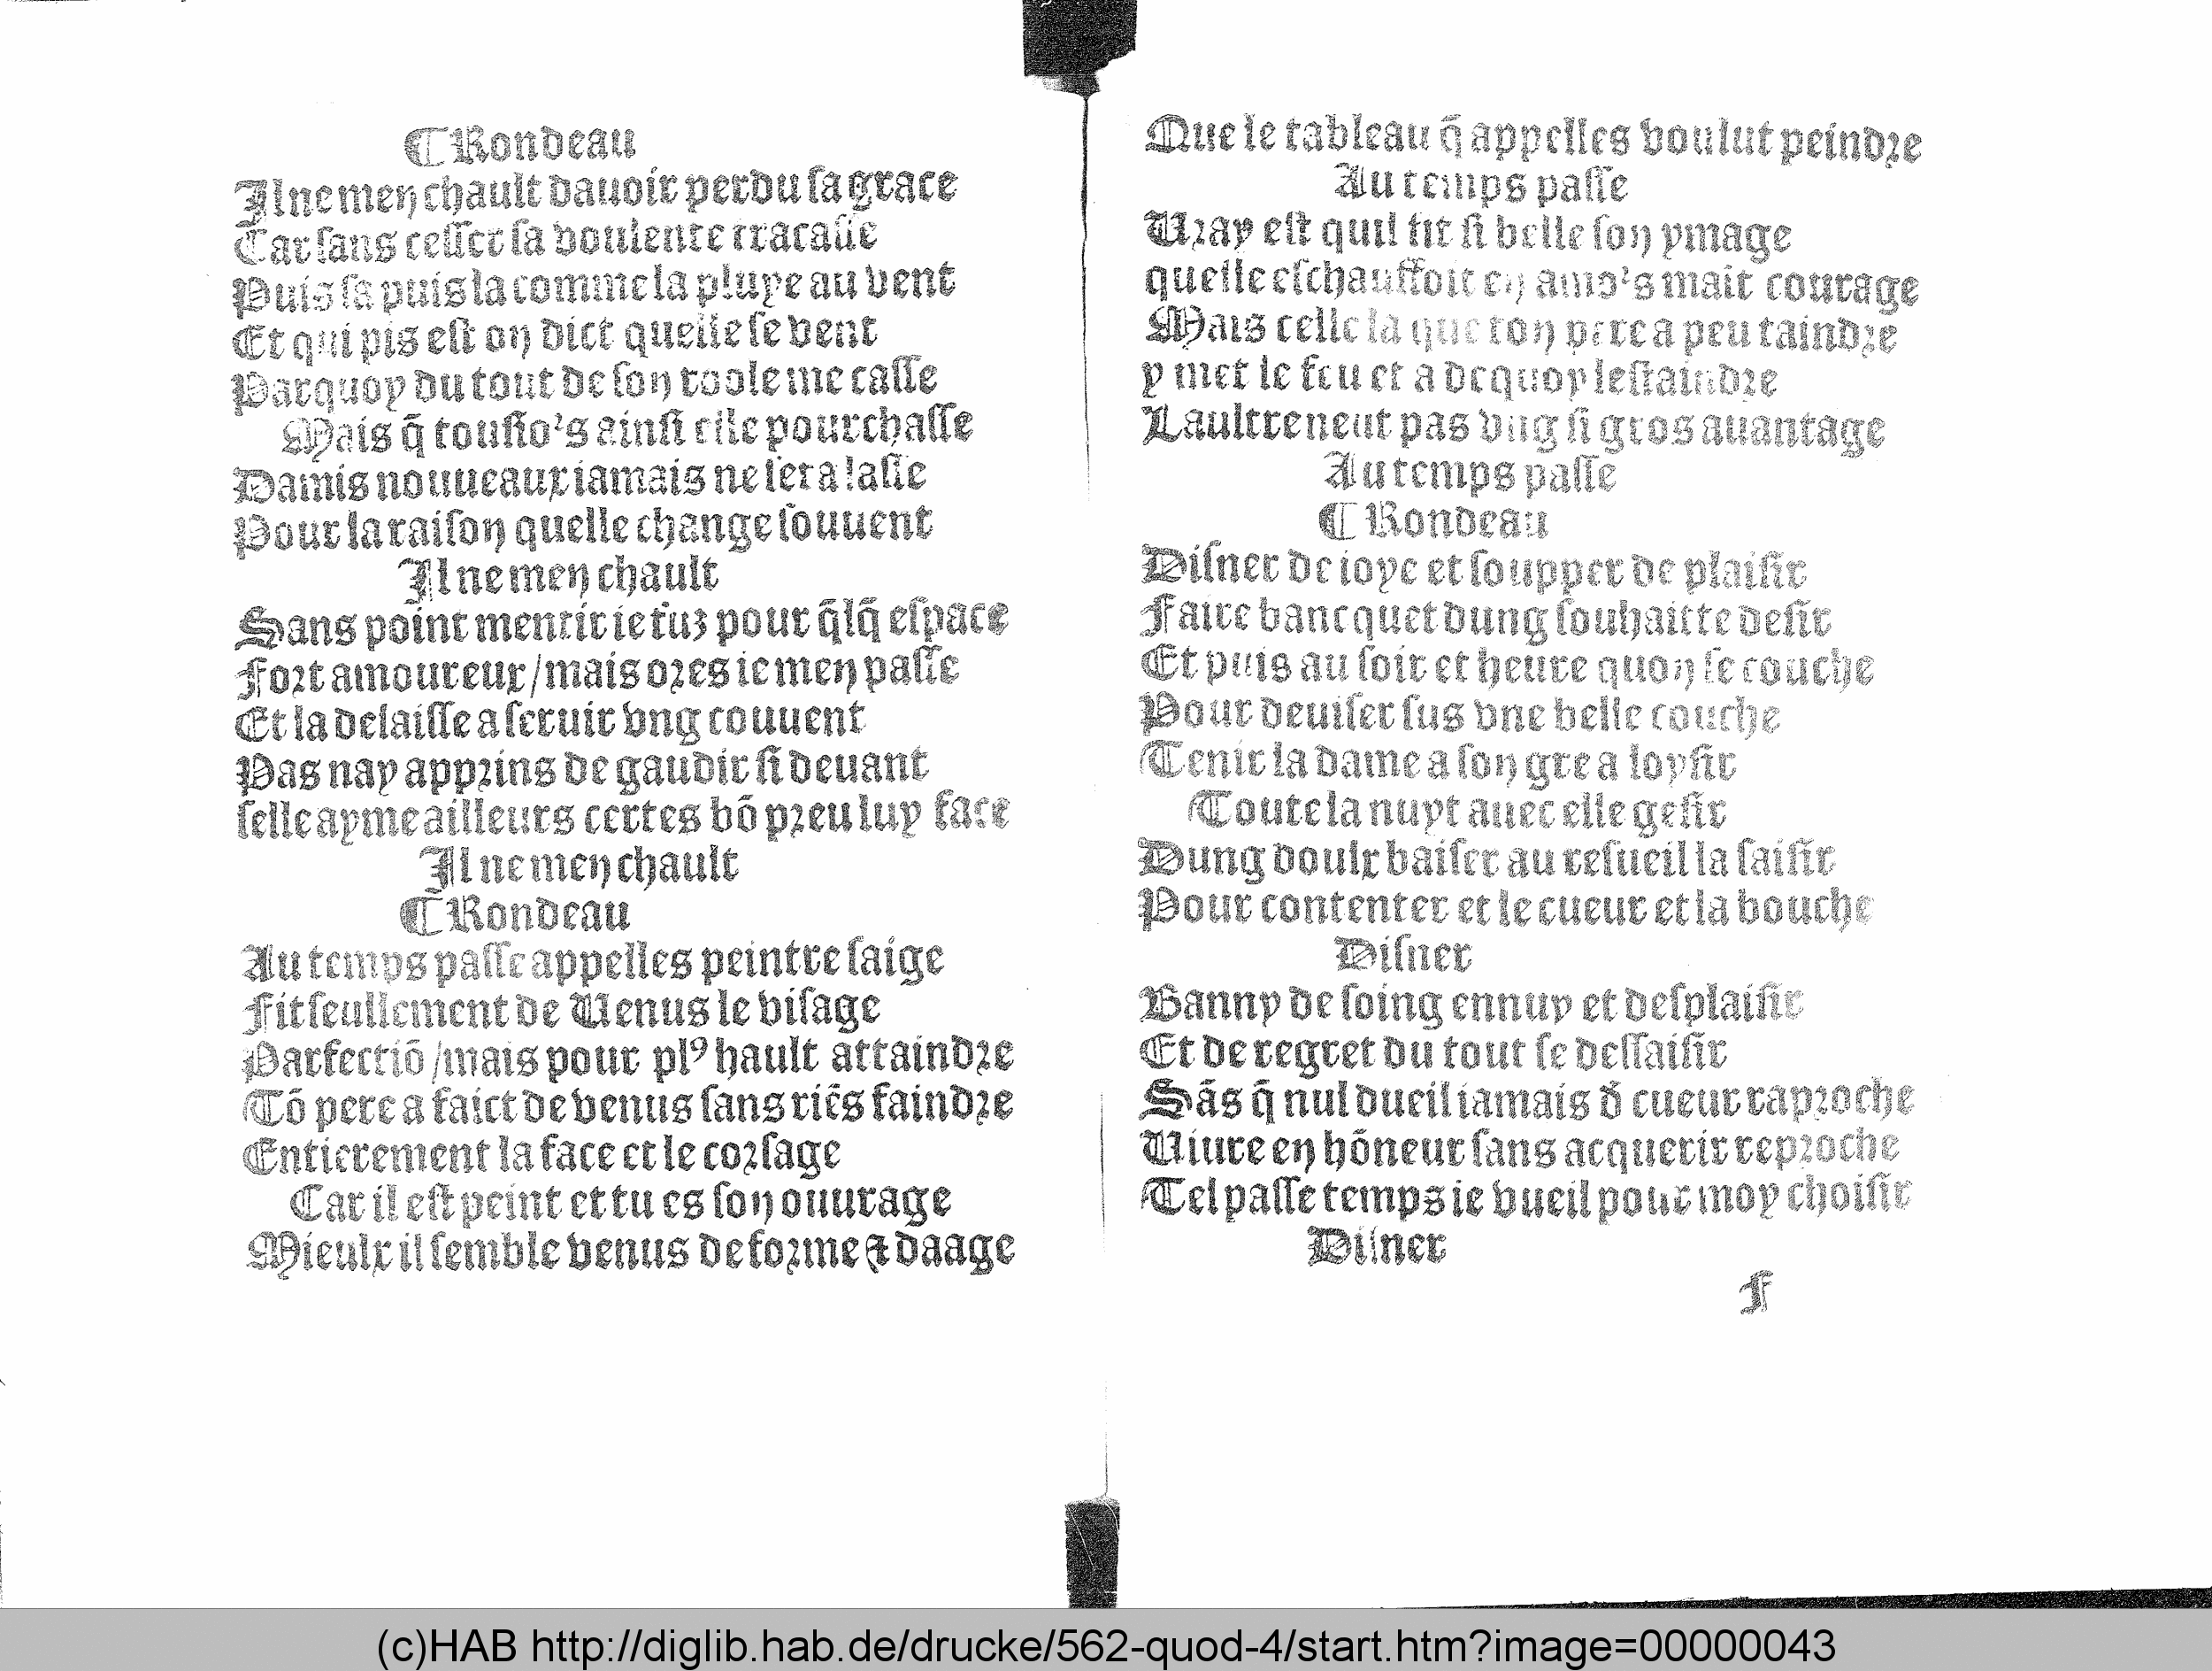 ⸿ Rondeau
Il ne men chault dauoir perdu ſa grace
Car ſans ceſſer ſa voulente tracaſſe
Puis ſa puis la comme la pluye au vent
Et qui pis eſt on dict quelle ſe vent
Parquoy du tout de ſon roole me caſſe
Mais q̄ touſioˀs ainſi elle pourchaſſe
Damis nouueaux iamais ne ſera laſſe
Pour la raiſon quelle change ſouuent
Il ne men chault
Sans point mentir ie fuz pour q̄lq̄ eſpace
Fort amoureux/mais ores ie men paſſe
Et la delaiſſe a ſeruir vng couuent
Pas nay apprins de gaudir ſi deuant
ſelle ayme ailleurs certes bō preu luy face
Il ne men chault
⸿ Rondeau
Au temps paſſe appelles peintre ſaige
Fit ſeullement de Uenus le viſage
Parfectiō/mais pour plꝰ hault attaindre
Tō pere a faict de venus ſans riēs faindre
Entierement la face et le corſage
Car il eſt peint et tu es ſon ouurage
Mieulx il ſemble venus de forme ⁊ daage
Que le tableau q̄ appelles voulut peindre
Au temps paſſe
Uray eſt quil fit ſi belle ſon ymage
quelle eſchauffoit en amoˀs mait courage
Mais celle la que ton pere a peu taindre
y met le feu et a dequoy leſtaindre
Laultre neut pas vng ſi gros auantage
Au temps paſſe
⸿ Rondeau
Diſner de ioye et ſoupper de plaiſir
Faire bancquet dung ſouhaitte deſir
Et puis au ſoir et heure quon ſe couche
Pour deuiſer ſus vne belle couche
Tenir la dame a ſon gre a loyſir
Toute la nuyt auec elle geſir
Dung doulx baiſer au reſueil la ſaiſir
Pour contenter et le cueur et la bouche
Diſner
Banny de ſoing ennuy et deſplaiſir
Et de regret du tout ſe deſſaiſir
Sās q̄ nul dueil iamais d̄ cueur raproche
Uiure en hōneur ſans acquerir reproche
Tel paſſe temps ie vueil pour moy choiſir
Diſner
F
(c)HAB http://diglib.hab.de/drucke/562-quod-4/start.htm?image=00000043